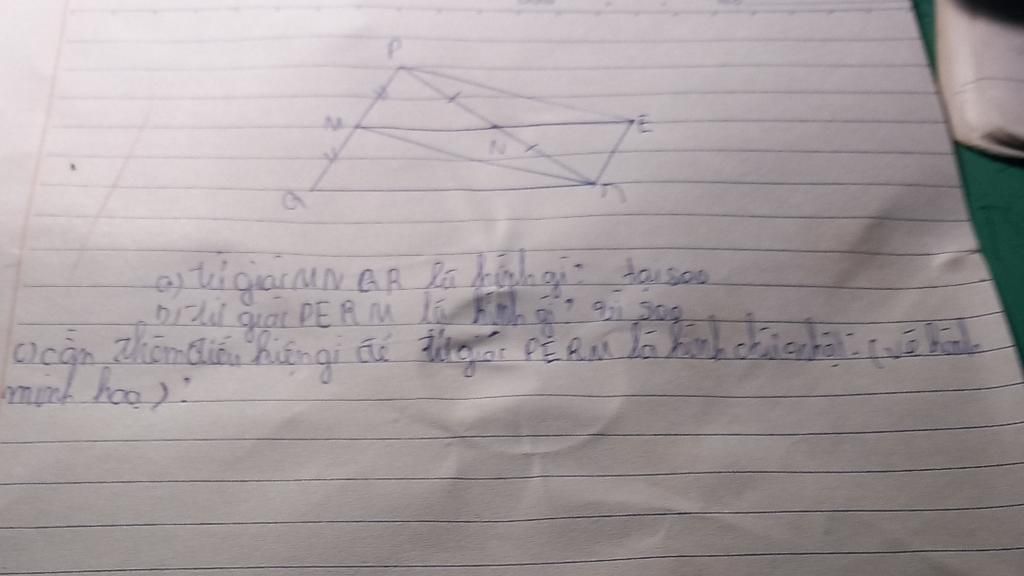 P
M
E
N
Q
R
a) tứ giác MNQR là hình gì? tại sao
b) tứ giác PERM là hình gì? vì sao
c) cần thêm điều kiện gì để tứ giác PERM là hình chữ nhật? (vẽ hình
minh hoạ)?